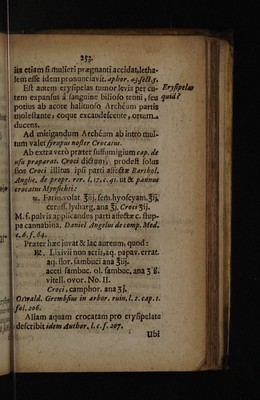 253.
iis etiam si mulieri prægnanti accidat, letha-
lem esse idem pronunciavit. aphor. 43. sect. 5.
Est autem erysipelas tumor levis per cu-
tem expansus à sanguine bilioso tenui, seu
potius ab acore halituoso Archéum partis
molestante, eoque excandescente, ortum
ducens.
Erysipelas
quid?
Ad mitigandum Archéum ab intro mul-
tum valet syrupus noster Crocatus.
Ab extra verò præter suffumigium cap. de
usu præparat. Croci dictum, prodest solus
flos Croci illitus ipsi parti affectæ Barthol.
Anglic. de propr. rer. l. 17. c. 41. ut & pannus
crocatus Mynsichti:
℞. Farin. volat. ℥iij. sem. hyoscyam. ℥ij.
ceruss. lytharg. ana ʒj. Croci ʒij.
M. f. pulvis applicandus parti affectæ c. stup-
pa cannabina. Daniel Angelus de comp. Med.
c. 6. f. 64.
Præter hæc juvat & lac aureum, quod:
℞. Lixivii non acris, aq. papav. errat.
aq. flor. sambuci ana ℥iij.
aceti sambuc. ol. sambuc. ana ℥ß.
vitell. ovor. No. II.
Croci, camphor. ana ʒj.
Oswald. Grembsius in arbor. ruin. l. 2. cap. 1.
fol. 206.
Aliam aquam crocatam pro erysipelate
describit idem Author. l. c. f. 207.
Ubi